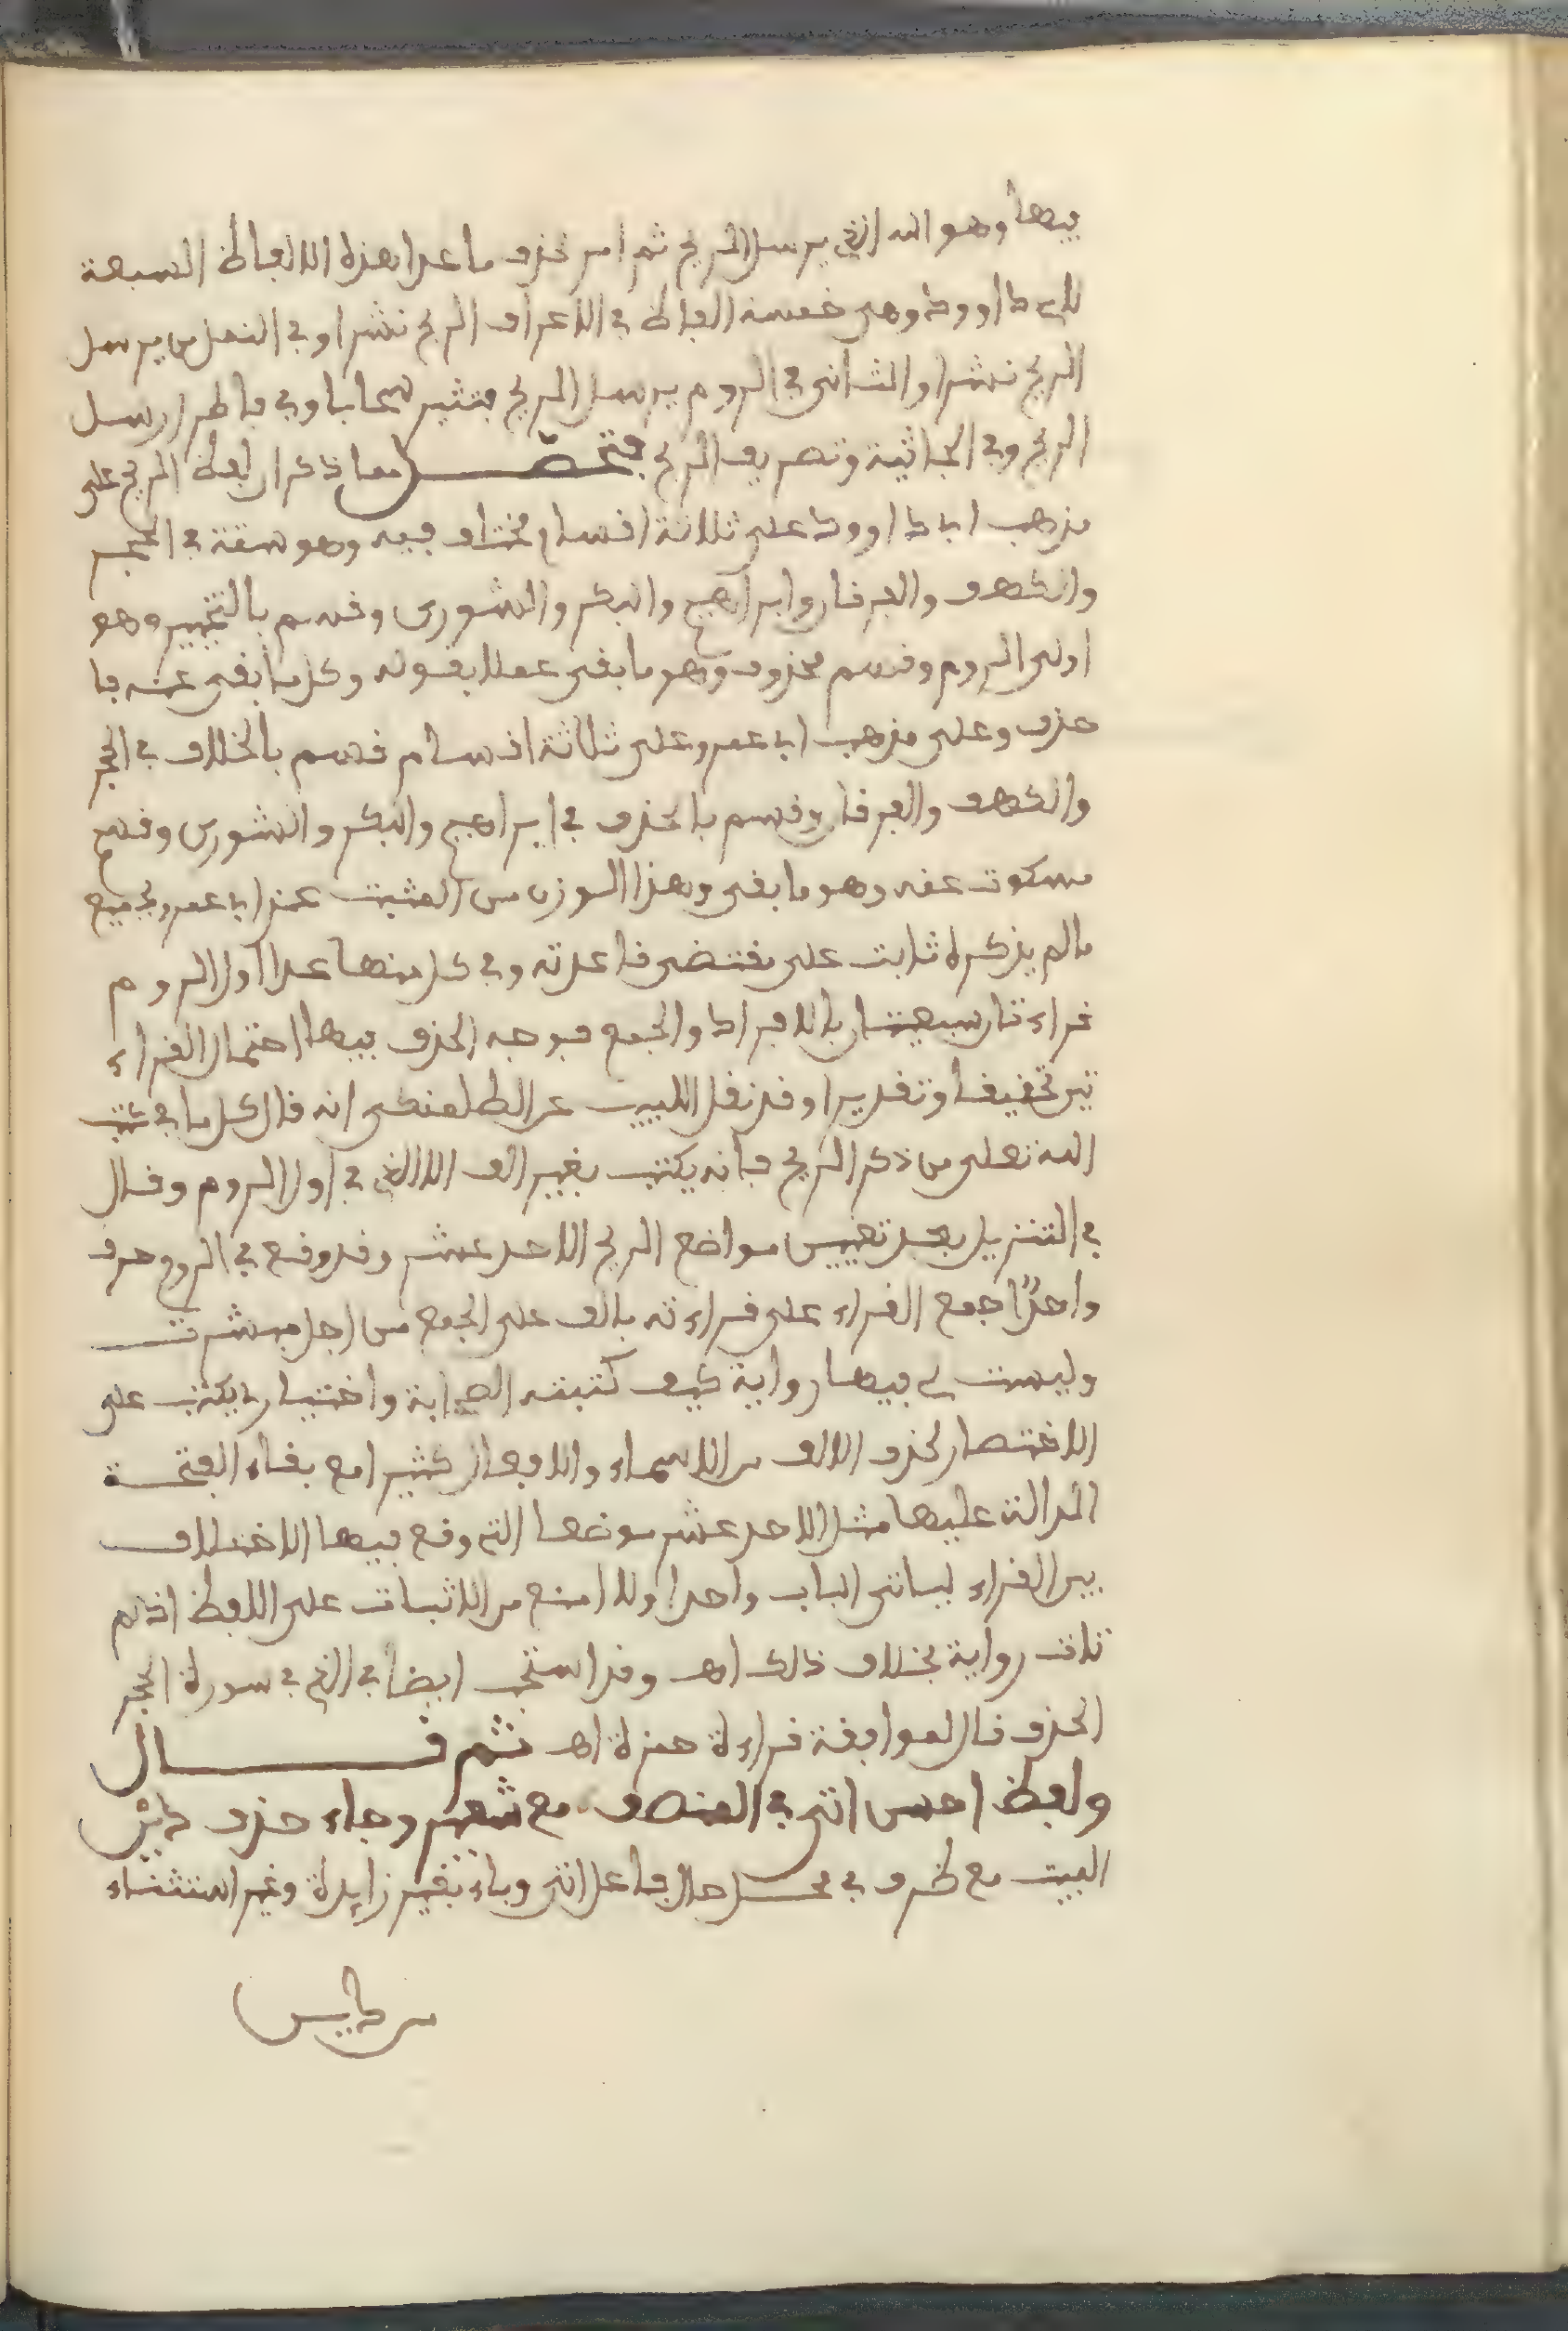 فيها وهو الله الذي يرسل الريح ثم امر بحذف ما عدا هذه الالفاظ السبعة
لابي داوود وهي خمسة الفاظ في الاعراف الريح نشرا وفي النمل من يرسل
الريح نشرا والثاني في الروم يرسل الريح فتثير سحابا وفي فاطر ارسل
الريح وفي الجاثية وتصريف الريح فتحصل مما ذكر ان لفظ الريح على
مذهب ابي داوود على ثلاثة اقسام مختلف فيه وهو ستة في الحجر
والكهف والفرقان وابراهيم والبكر والشورى وقسم بالتخيير وهو
اولى الروم وقسم محذوف وهو ما بقي عملا بقوله وكل ما بقي عنه فا
حذف وعلى مذهب ابي عمرو على ثلاثة اقسام قسم بالخلاف في الحجر
والكهف والفرقان وقسم بالحذف في ابراهيم والبكر والشورى وقسم
مسكوت عنه وهو ما بقي وهذا الوزن من المثبت عند ابي عمرو فجميع
ما لم يذكره ثابت على مقتضى قاعدته وفي كل منها عدا اول الروم
قراءتان سبعيتان بالافراد والجمع فوجه الحذف فيها احتمال القراء
تين تحقيقا وتقديرا وقد نقل اللبيب عن الطلمنكي انه قال كل ما في كتب
الله تعلى من ذكر الريح فانه يكتب بغير الف الا الذي في اول الروم وقال
في التنزيل بعد تعيين مواضع الريح الاحد عشر وقد وقع في الروم حرف
واحدا اجمع القراء على قراءته بالف على الجمع من اجل مبشرت
وليست لي فيها رواية كيف كتبته الصحابة واختياري يكتب على
الاختصار لحذف الالف من الاسماء والافعال كثيرا مع بقاء الفتحة
الدالة عليها مثل الاحد عشر موضعا التي وقع فيها الاختلاف
بين القراء لياتي الباب واحدا ولا امنع من الاثبات على اللفظ اذ لم
تات رواية بخلاف ذلك اهـ وقد استحب ايضا في الذي في سورة الحجر
الحذف قال لموافقة قراءة حمزة اهـ ثم قال
ولفظ احسن اتى في المنصف مع شعير وجاء حذف
البيت مع ظرف في محل حال فاعل اتى وباء بغير زايدة وغير استثناء
من